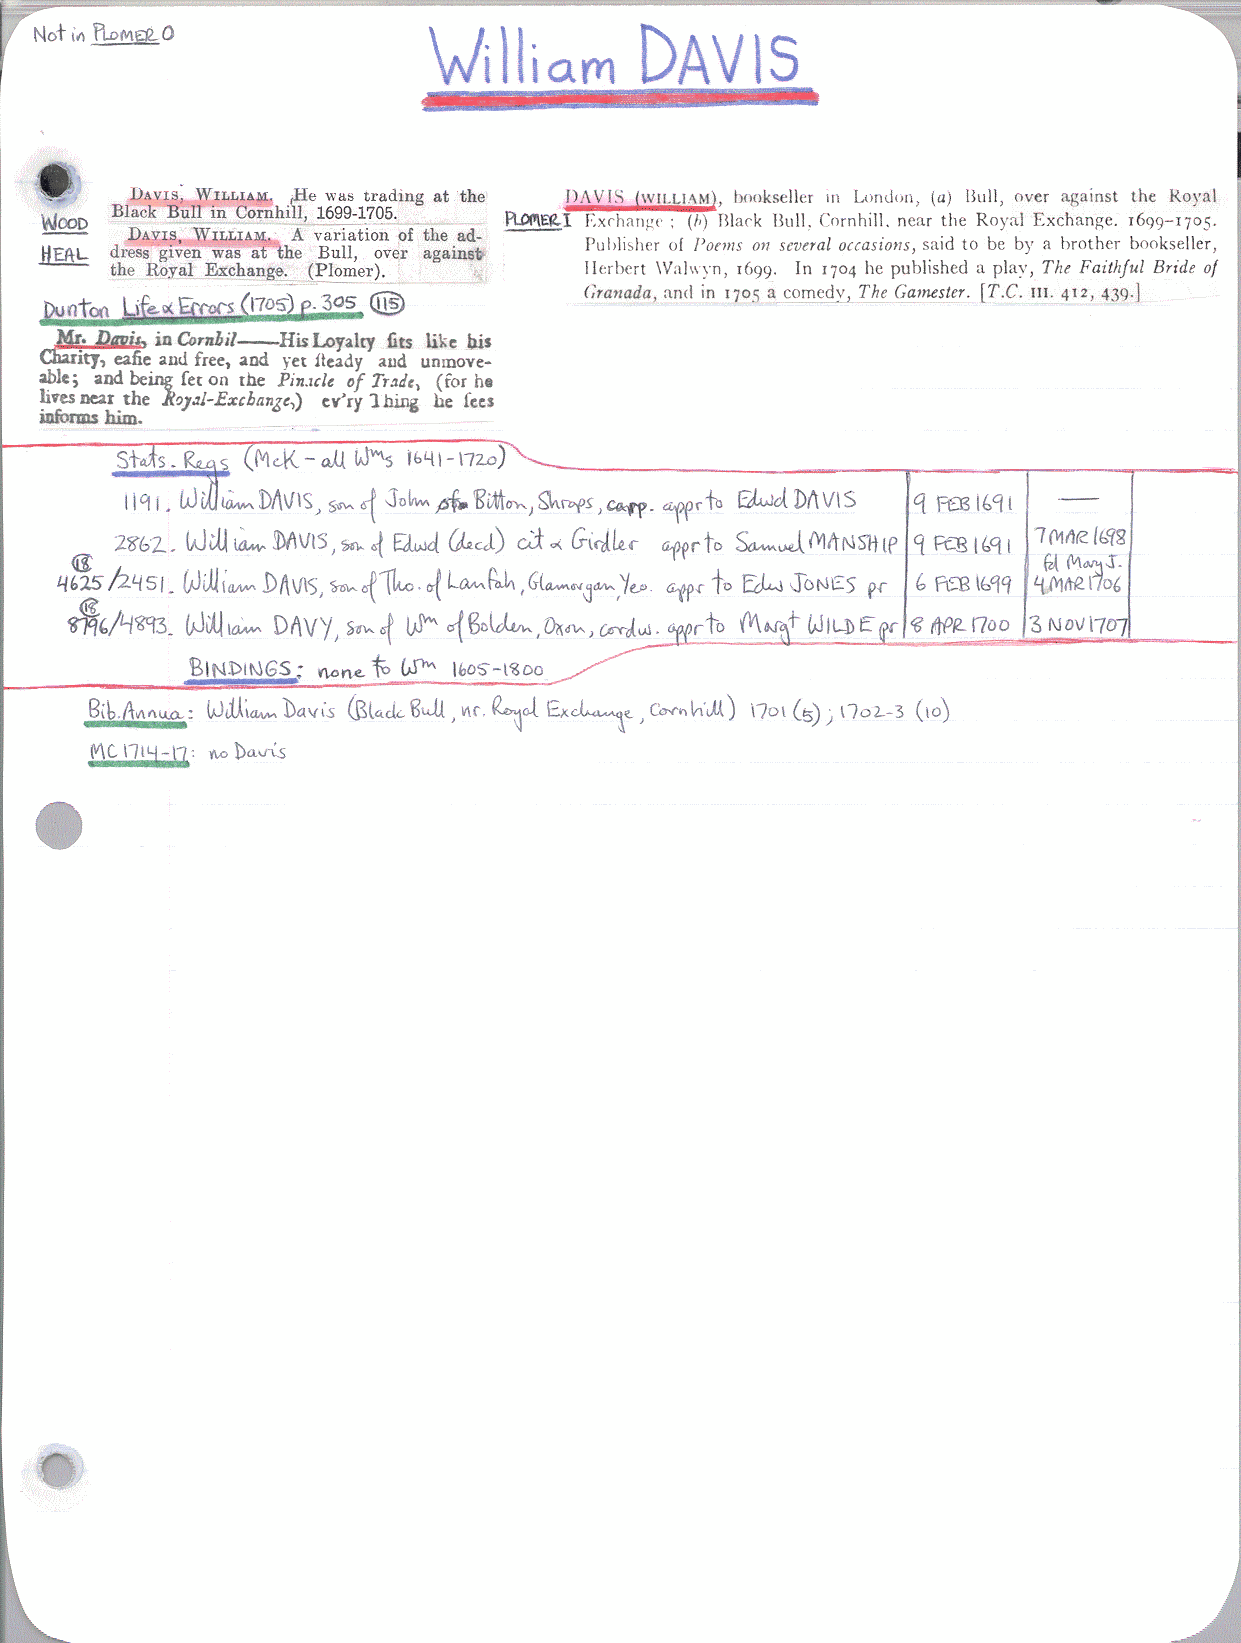 Not in PLOMER O
William DAVIS
WOOD
HEAL
DAVIS, WILLIAM. He was trading at the
Black Bull in Cornhill, 1699-1705.
DAVIS, WILLIAM. A variation of the ad-
dress given was at the Bull, over against
the Royal Exchange. (Plomer).
PLOMER I
DAVIS (WILLIAM), bookseller in London, (a) Bull, over against the Royal
Exchange; (b) Black Bull, Cornhill, near the Royal Exchange. 1699-1705.
Publisher of Poems on several occasions, said to be by a brother bookseller,
Herbert Walwyn, 1699. In 1704 he published a play, The Faithful Bride of
Granada, and in 1705 a comedy, The Gamester. [T.C. III. 412, 439.]
Dunton Life & Errors (1705) p. 305 (115)
Mr. Davis, in Cornhil——His Loyalty ſits like his
Charity, eaſie and free, and yet ſteady and unmove-
able; and being ſet on the Pinacle of Trade, (for he
lives near the Royal-Exchange,) ev'ry Thing he ſees
informs him.
Stats. Regs (McK - all Wms 1641-1720)
1191. William DAVIS, son of John of Bitton, Shrops, carp. appr to Edwd DAVIS 9 FEB 1691 —
2862. William DAVIS, son of Edwd (decd) cit & Girdler appr to Samuel MANSHIP 9 FEB 1691 7 MAR 1698
18 fd Mary J.
4625/2451. William DAVIS, son of Tho. of Lanfah, Glamorgan, Yeo. appr to Edw JONES pr 6 FEB 1699 4 MAR 1706
18
8796/4893. William DAVY, son of Wm of Bolden, Oxon, cordw. appr to Margt WILDE pr 8 APR 1700 3 NOV 1707
BINDINGS: none to Wm 1605-1800
Bib. Annua: William Davis (Black Bull, nr. Royal Exchange, Cornhill) 1701 (5); 1702-3 (10)
MC 1714-17: no Davis